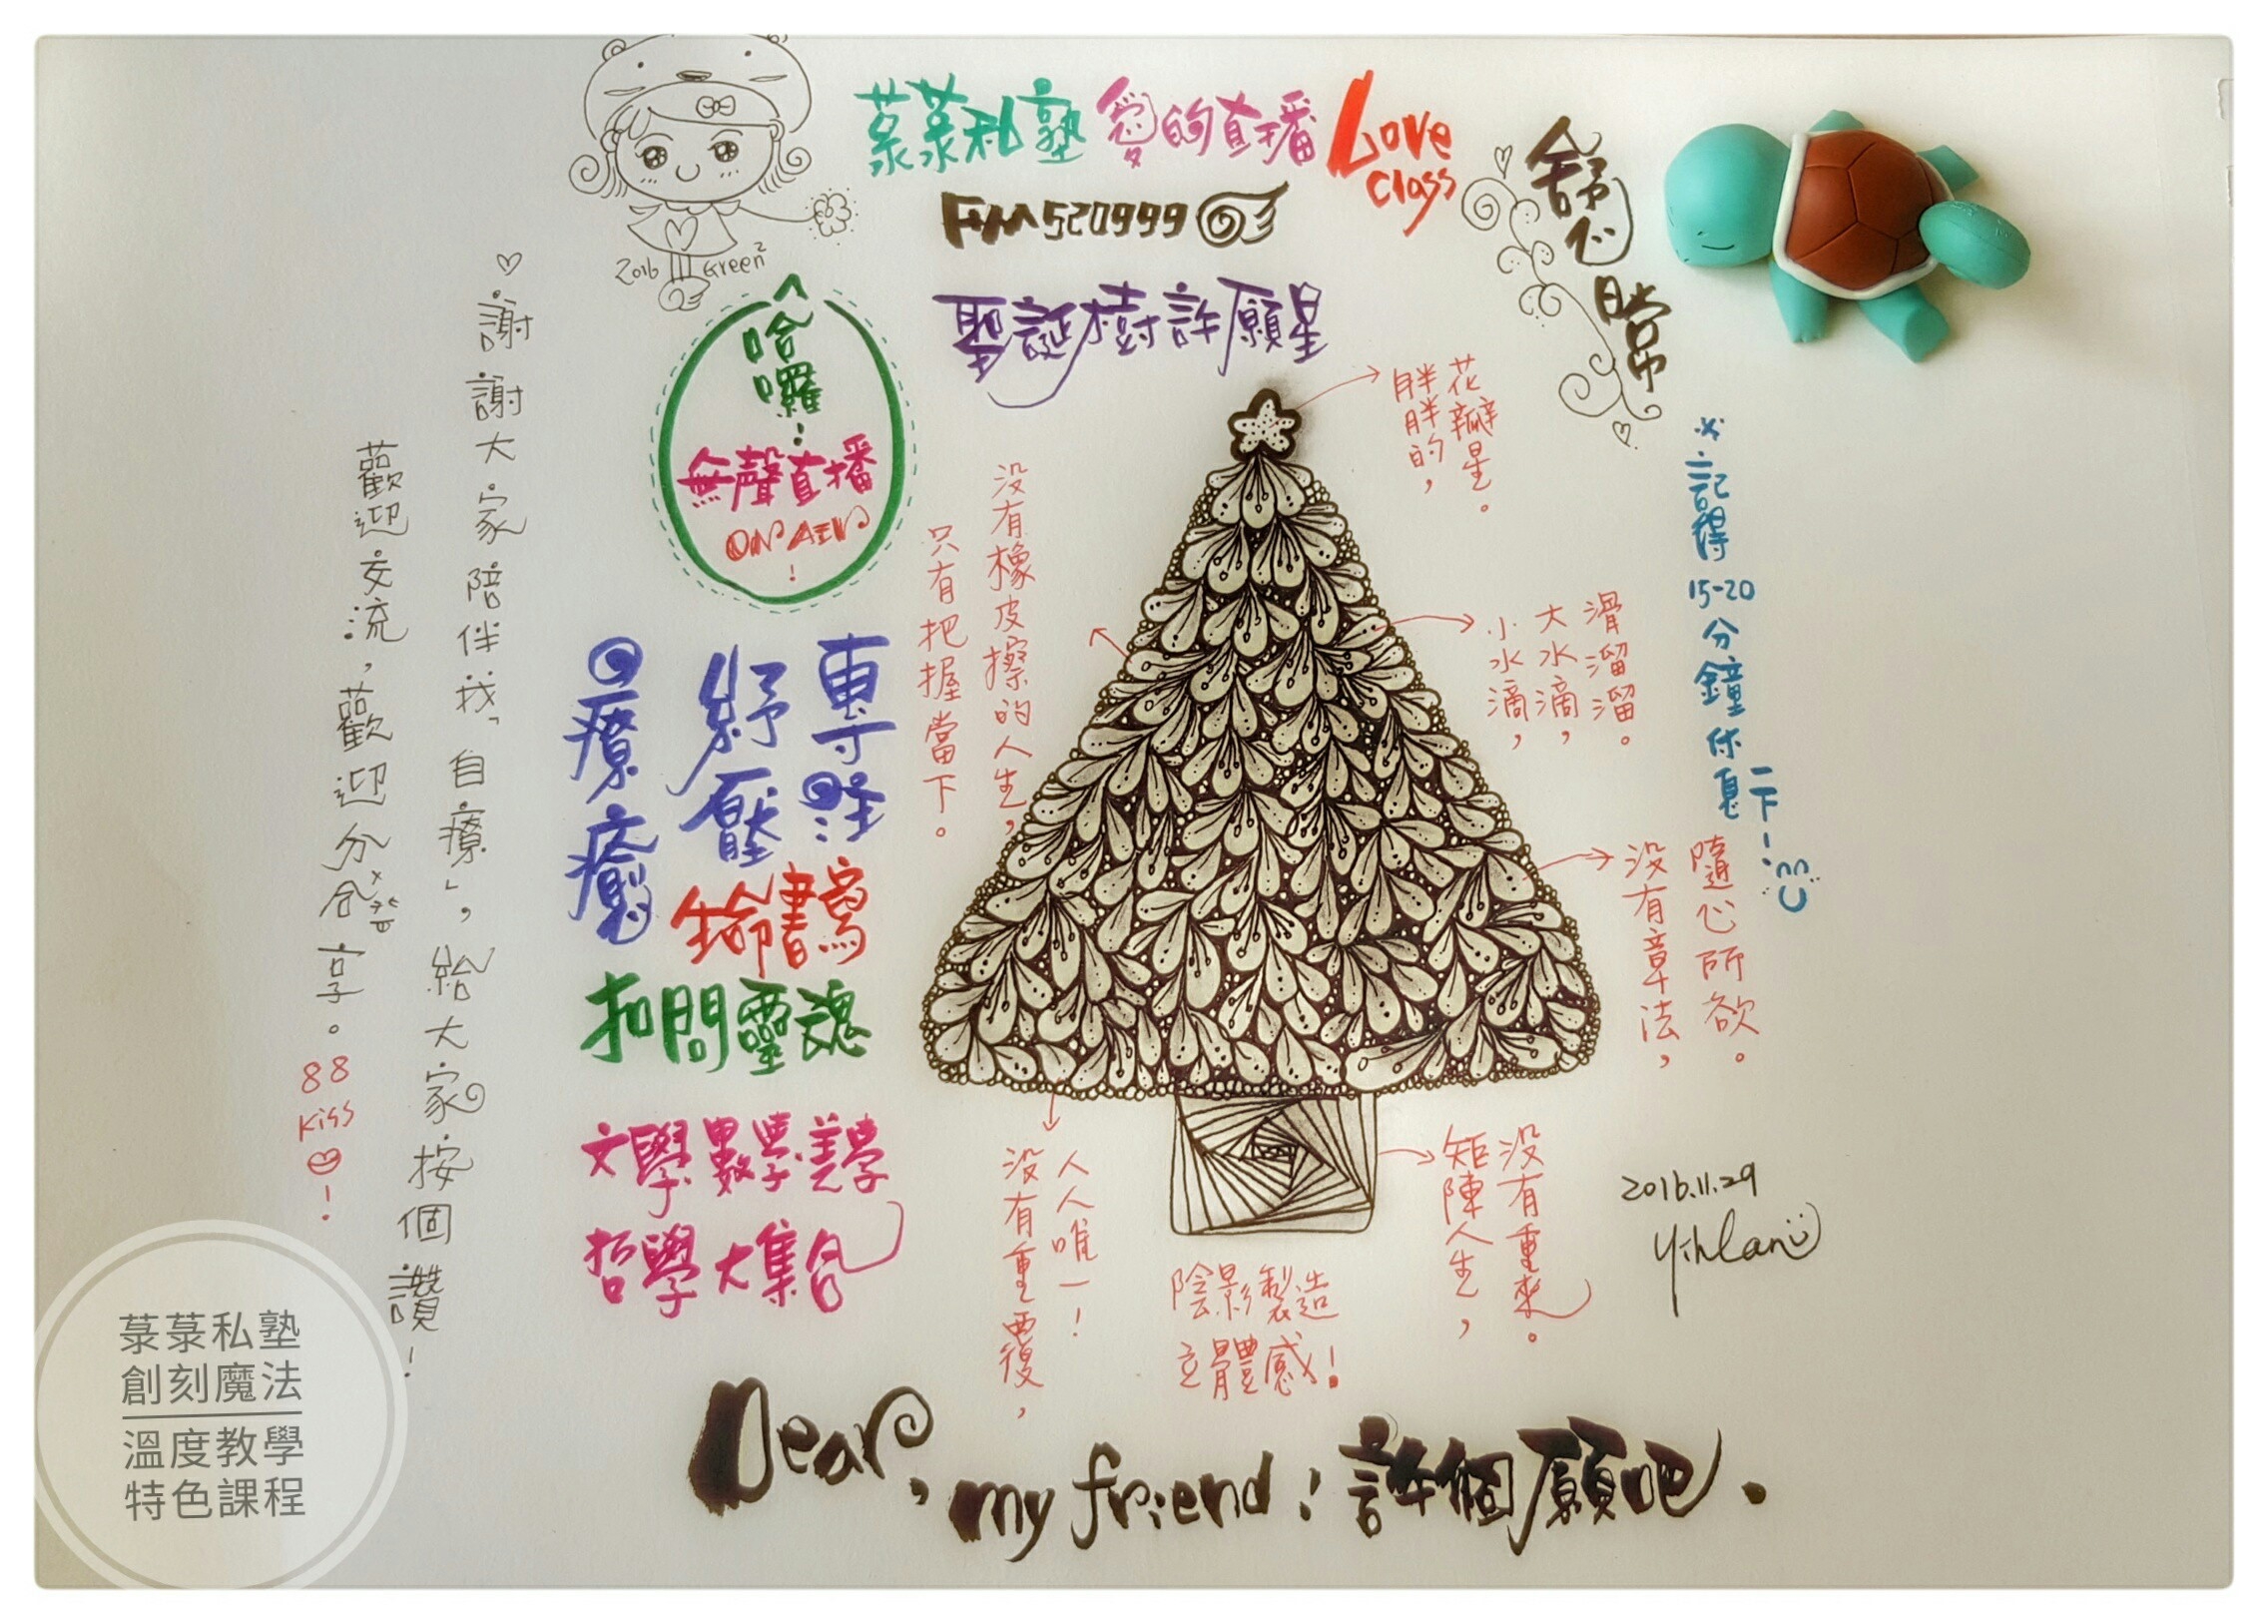 菉菉私塾 愛的直播 Love class
FM520999
聖誕樹許願星
舒心時常
2016 Green²
哈囉!
無聲直播
ON AIR
!
胖胖的,
花瓣星。
※記得15-20分鐘休息一下!
沒有橡皮擦的人生,
只有把握當下。
小水滴,
大水滴,
滑溜溜。
專注
紓壓
療癒
生命書寫
扣問靈魂
文學.數學.美學
哲學大集合
沒有章法,
隨心所欲。
沒有重覆,
人人唯一!
矩陣人生,
沒有重來。
陰影製造
立體感!
♡謝謝大家陪伴我「自療」,給大家按個讚!
歡迎交流,歡迎分享。88 Kiss!
2016.11.29
Yihlan
Dear, my friend! 許個願吧.
菉菉私塾
創刻魔法
溫度教學
特色課程